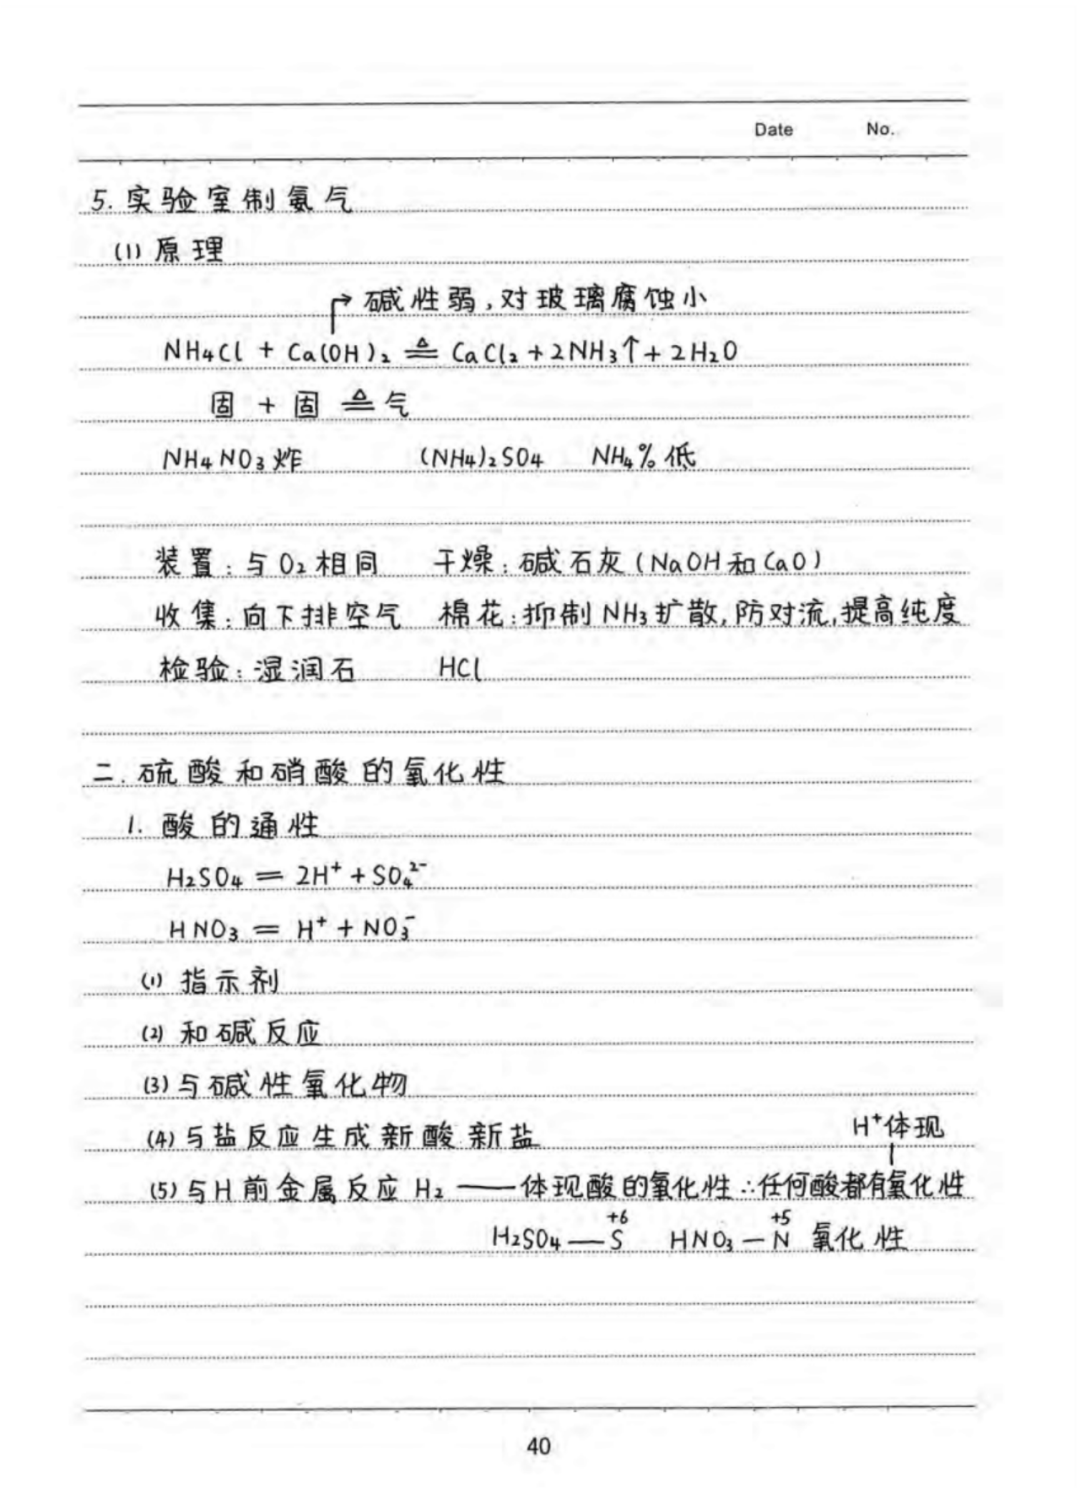 Date No.
5. 实验室制氨气
(1) 原理
碱性弱,对玻璃腐蚀小
NH₄Cl + Ca(OH)₂ ≜ CaCl₂ + 2NH₃↑ + 2H₂O
固 + 固 ≜ 气
NH₄NO₃炸 (NH₄)₂SO₄ NH₄%低
装置:与O₂相同 干燥:碱石灰(NaOH和CaO)
收集:向下排空气 棉花:抑制NH₃扩散,防对流,提高纯度
检验:湿润石 HCl
二.硫酸和硝酸的氧化性
1. 酸的通性
H₂SO₄ = 2H⁺ + SO₄²⁻
HNO₃ = H⁺ + NO₃⁻
(1) 指示剂
(2) 和碱反应
(3) 与碱性氧化物
(4) 与盐反应生成新酸新盐
H⁺体现
(5) 与H前金属反应H₂ ——体现酸的氧化性∴任何酸都有氧化性
+6 +5
H₂SO₄ — S HNO₃ — N 氧化性
40